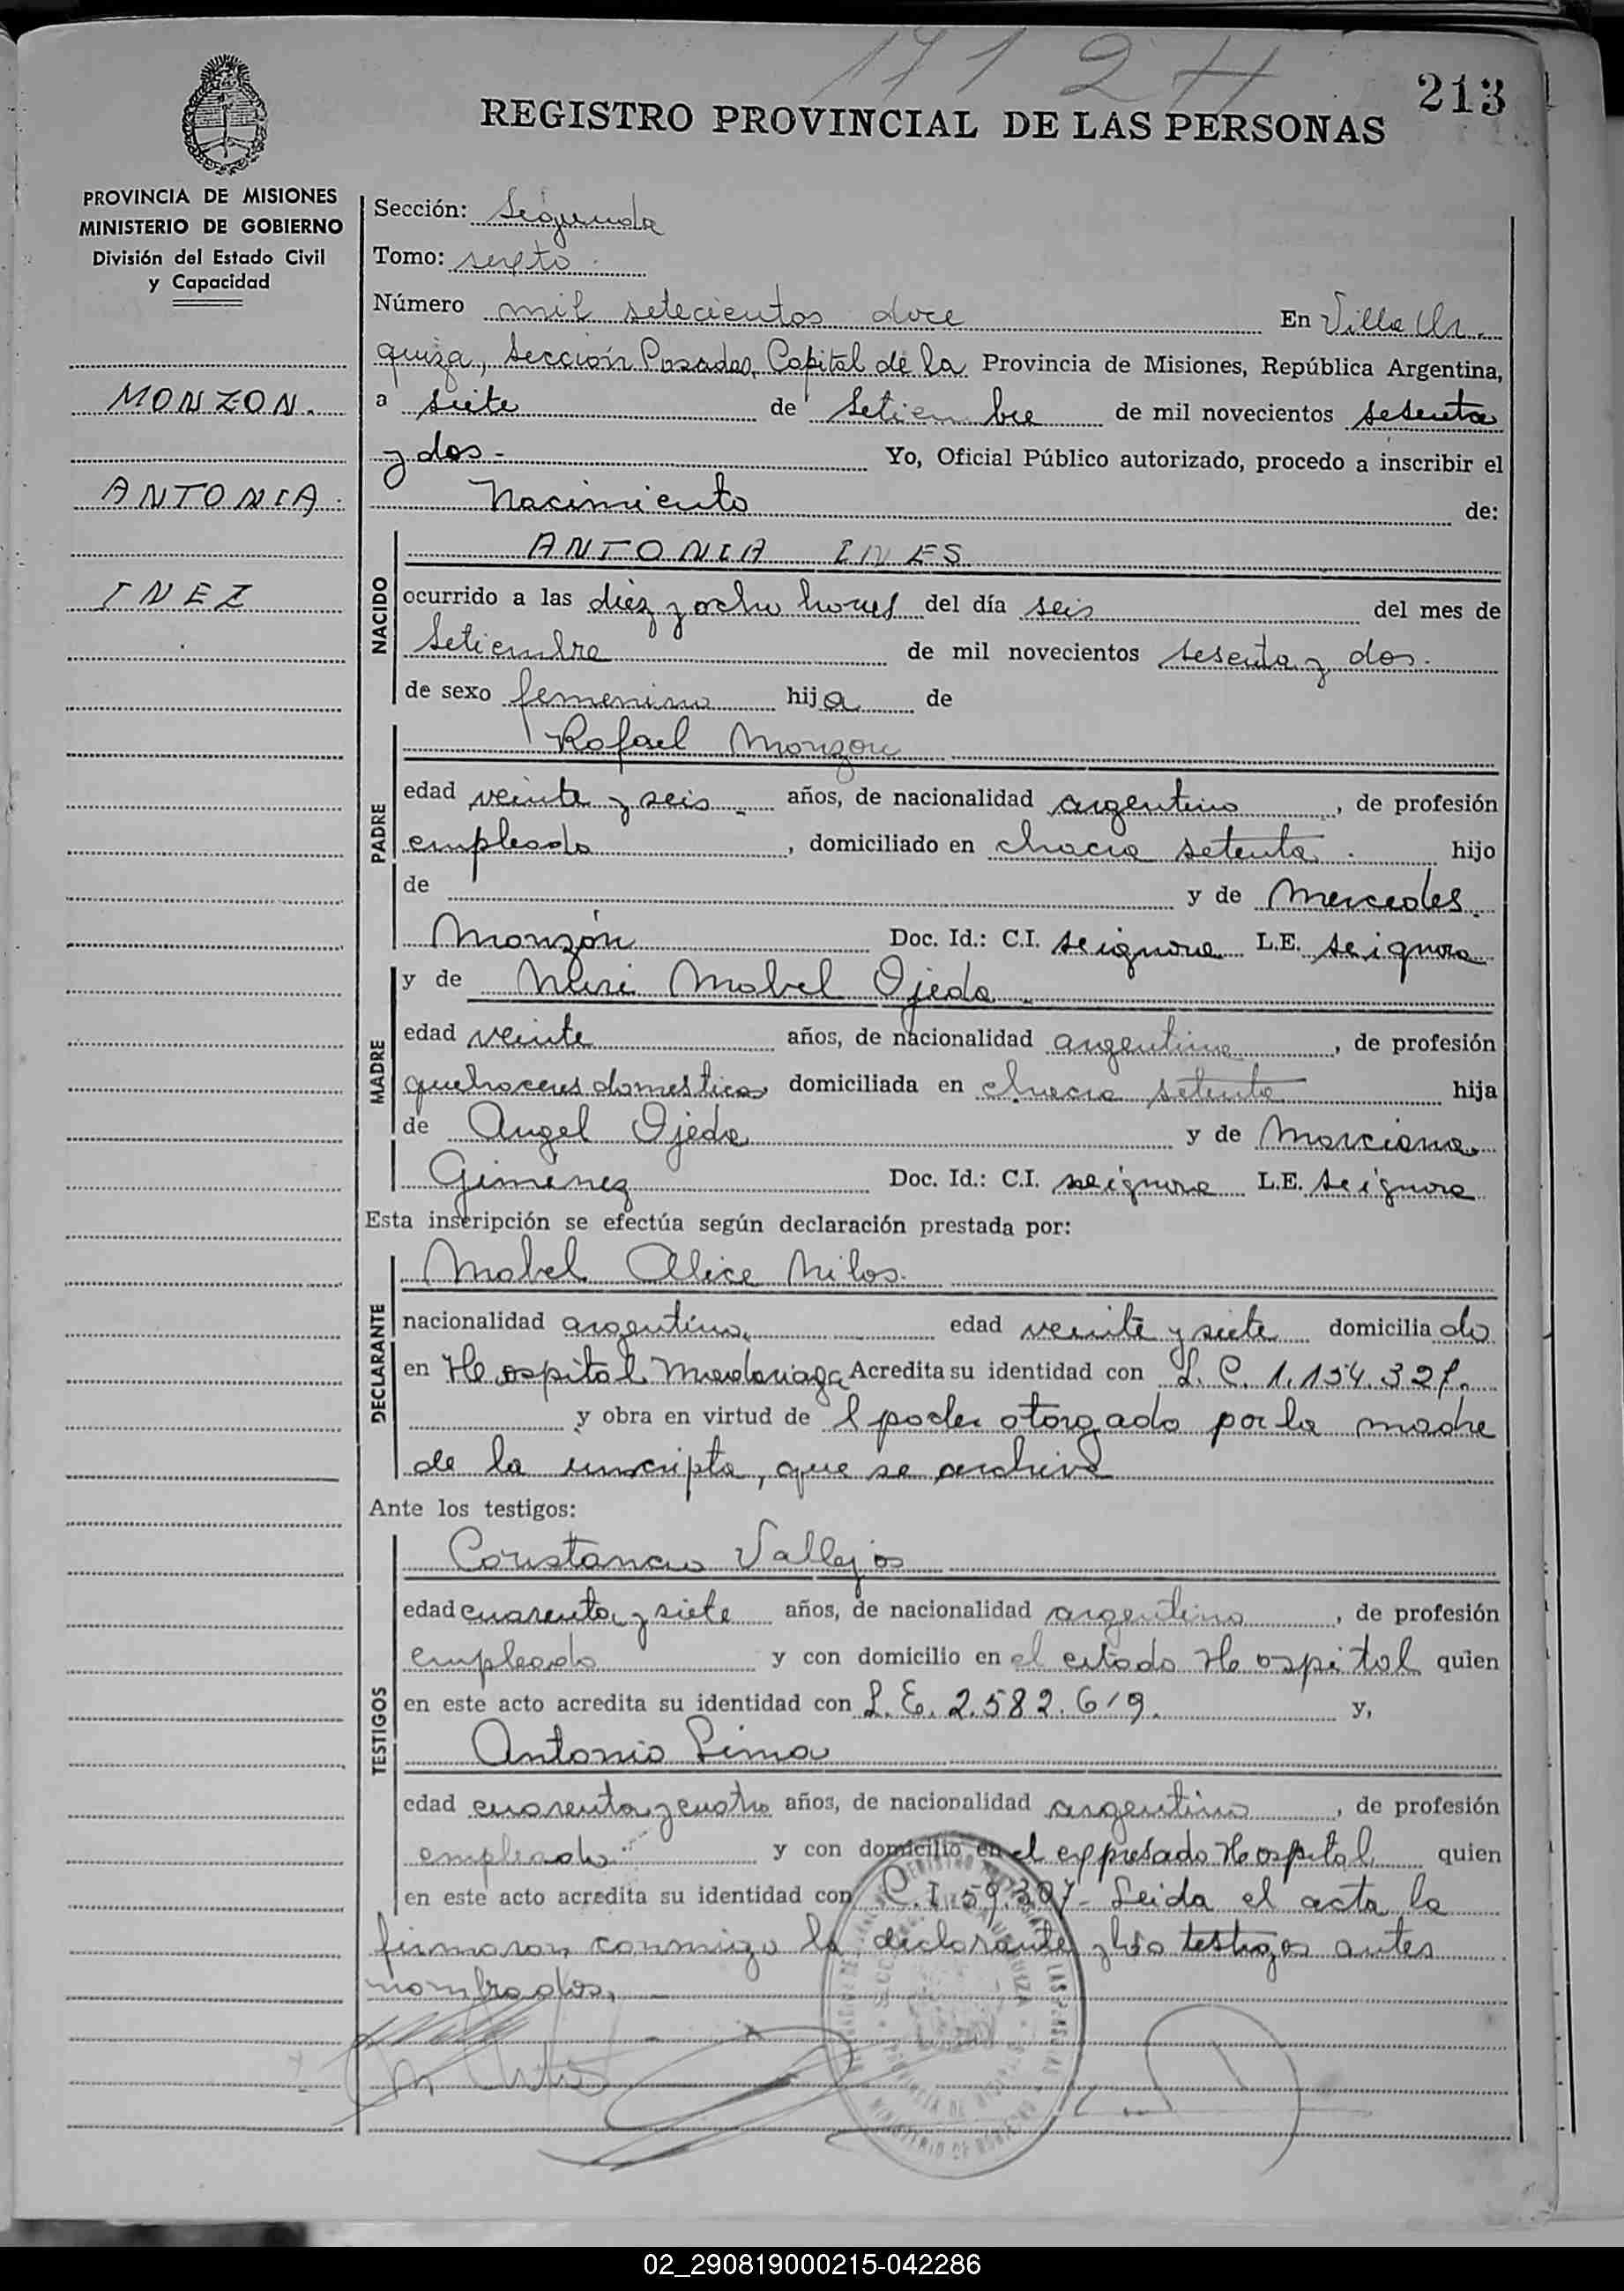 1712 H
213
REGISTRO PROVINCIAL DE LAS PERSONAS
PROVINCIA DE MISIONES
MINISTERIO DE GOBIERNO
División del Estado Civil
y Capacidad
MONZON.
ANTONIA
INEZ
Sección: Segunda
Tomo: sexto
Número mil setecientos doce En Villa Ur-
quiza, Sección Posadas, Capital de la Provincia de Misiones, República Argentina,
a siete de Setiembre de mil novecientos sesenta
y dos- Yo, Oficial Público autorizado, procedo a inscribir el
Nacimiento de:
NACIDO
ANTONIA INES
ocurrido a las diez y ocho horas del día seis del mes de
Setiembre de mil novecientos sesenta y dos.
de sexo femenino hija de
PADRE
Rafael Monzon
edad veinte y seis años, de nacionalidad argentino, de profesión
empleado, domiciliado en chacra setenta. hijo
de y de Mercedes
Monzón Doc. Id.: C.I. se ignora L.E. se ignora
MADRE
y de Mabel Ojeda
edad veinte años, de nacionalidad argentina, de profesión
quehaceres domesticos domiciliada en chacra setenta hija
de Angel Ojeda y de Marciana
Giménez Doc. Id.: C.I. se ignora L.E. se ignora
Esta inscripción se efectúa según declaración prestada por:
DECLARANTE
Mabel Alice Milos.
nacionalidad argentina, edad veinte y siete domiciliado
en Hospital Madariaga Acredita su identidad con L. C. 1.154.327.
y obra en virtud del poder otorgado por la madre
de la inscripta, que se archiva
Ante los testigos:
TESTIGOS
Constancio Vallejos
edad cuarenta y siete años, de nacionalidad argentino, de profesión
empleado y con domicilio en el citado Hospital quien
en este acto acredita su identidad con L. E. 2.582.619. y,
Antonio Lima
edad cuarenta y cuatro años, de nacionalidad argentino, de profesión
empleado y con domicilio en el expresado Hospital quien
en este acto acredita su identidad con C. I 59.307- Leida el acta la
firmaron conmigo la declarante y los testigos antes
nombrados.
02_290819000215-042286